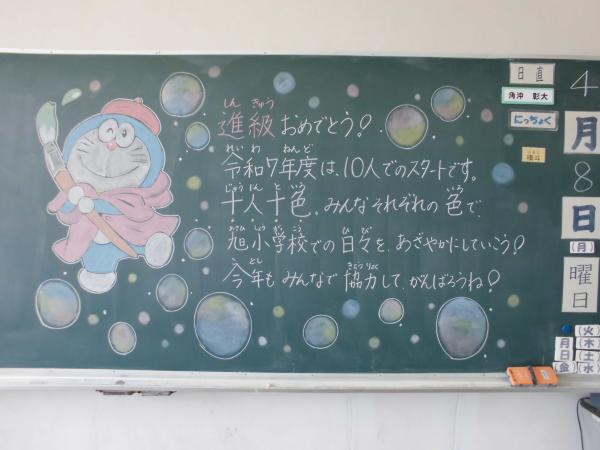 進級おめでとう!
しん きゅう
令和7年度は、10人でのスタートです。
れい わ ねんど
十人十色。みんなそれぞれの色で、
じゅう にん と いろ いろ
旭小学校での日々を、あざやかにしていこう!
あさひ しょう がっ こう ひ び
今年もみんなで協力して、がんばろうね!
ことし きょうりょく
日直
角沖 彰大
にっちょく
4
月
8
日
(月)
曜
日
(火)
月 (木)
日 (土)
(金) (水)